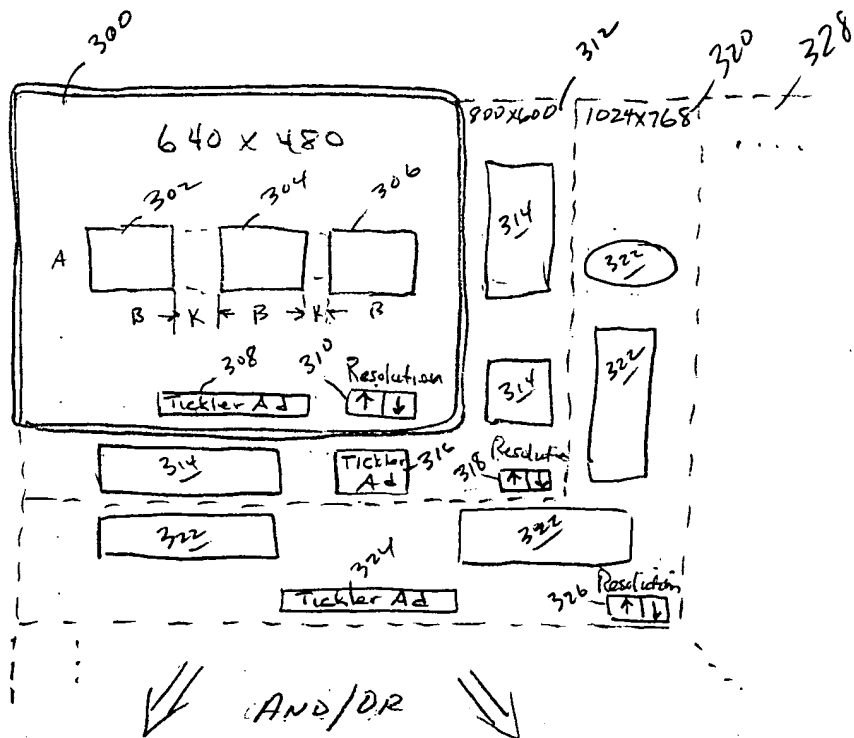 300
312
320
328
640 x 480
800x600
1024x768
....
302
304
306
314
322
A
B K B K B
322
308
310
Resolution
314
Tickler Ad ↑ ↓
314
Tickler Ad
316
318
Resolution
↑ ↓
322
322
324
Tickler Ad
326
Resolution
↑ ↓
AND/OR